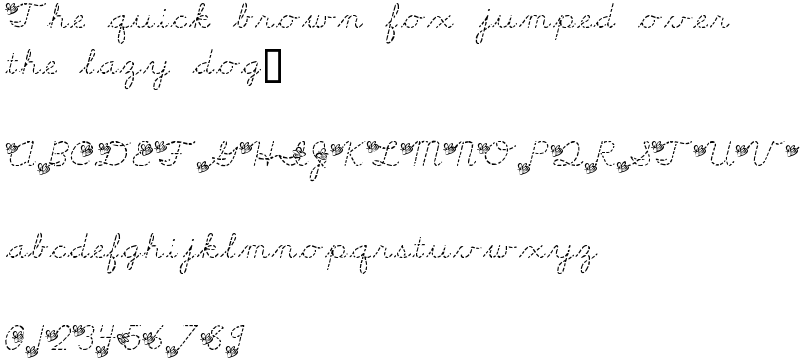 The quick brown fox jumped over
the lazy dog
ABCDEFGHIJKLMNOPQRSTUV
abcdefghijklmnopqrstuvwxyz
0123456789